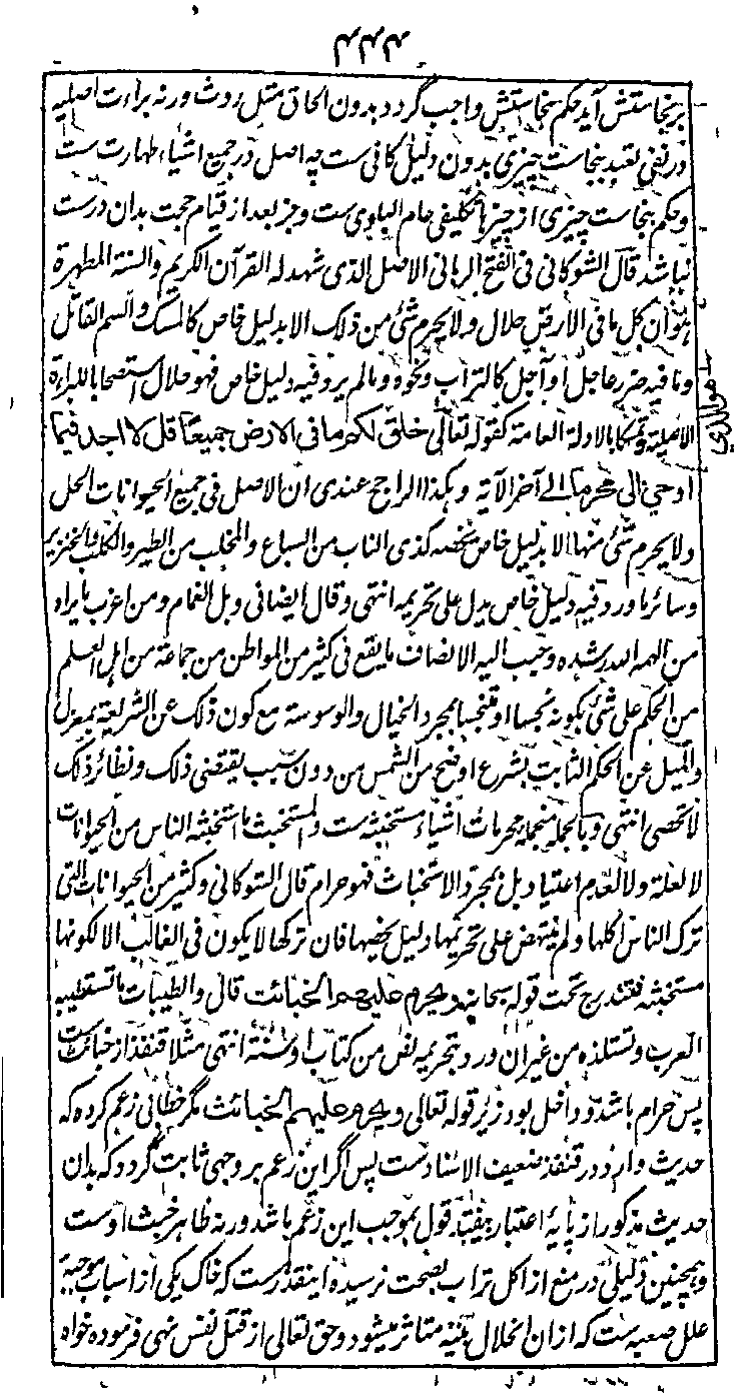 ۴۴۴
بر نجاستش آید حکم بنجاستش واجب گردد بدون الحاق مثل روث ورنه براءت اصلیه
در نفی تعبد بنجاست چیزی بدون دلیل کافی ست چه اصل در جمیع اشیاء طهارت ست
و حکم بنجاست چیزی از چیزها تکلیفی عام البلوی ست و جز بعد از قیام حجت بدان درست
نباشد قال الشوکانی فی الفتح الربانی الاصل الذی شهد له القرآن الکریم والسنة المطهرة
هو ان کل ما فی الارض حلال ولا یحرم شئ من ذلک الا بدلیل خاص کالمسکر والسم القاتل
وما فیه ضرر عاجل او آجل کالتراب ونحوه وما لم یرد فیه دلیل خاص فهو حلال استصحابا للبراءة
الاصلیة وتمسکا بالادلة العامة کقوله تعالی خلق لکم ما فی الارض جمیعا قل لا اجد فیما
هو الذی
اوحی الی محرما الی آخر الآیة وهکذا الراجح عندی ان الاصل فی جمیع الحیوانات الحل
ولا یحرم شئ منها الا بدلیل خاص یخصه کذی الناب من السباع والمخلب من الطیر والکلب والخنزیر
وسائر ما ورد فیه دلیل خاص یدل علی تحریمه انتهی وقال ایضا فی وبل الغمام ومن اغرب ما یراه
من الهمه الله رشده وحبب الیه الانصاف ما یقع فی کثیر من المواطن من جماعة من اهل العلم
من الحکم علی شئ بکونه نجسا او متنجسا بمجرد الخیال والوسوسة مع کون ذلک عن الشریعة بمعزل
والمیل عن الحکم الثابت بشرع اوضح من الشمس من دون سبب یقتضی ذلک ونظائر ذلک
لا تحصی انتهی وبالجمله منجمله محرمات اشیاء مستخبثه ست والمستخبث ما استخبثه الناس من الحیوانات
لا لعلة ولا لعدم اعتیاد بل بمجرد الاستخباث فهو حرام قال الشوکانی وکثیر من الحیوانات التی
ترک الناس اکلها ولم ینتهض علی تحریمها دلیل یخصها فان ترکها لا یکون فی الغالب الا لکونها
مستخبثه فتندرج تحت قوله سبحانه ویحرم علیهم الخبائث قال والطیبات ما تستطیبه
العرب وتستلذه من غیر ان ورد بتحریمه نص من کتاب او سنة انتهی مثلا قنفذ از خبائث ست
پس حرام باشد و داخل بود زیر قوله تعالی ویحرم علیهم الخبائث مگر خطابی زعم کرده که
حدیث وارد در قنفذ ضعیف الاسناد ست پس اگر این زعم بر وجهی ثابت گردد که بدان
حدیث مذکور از پایهٔ اعتبار بیفتد قول بموجب این زعم باشد ورنه ظاهر خبث اوست
وهمچنین دلیلی در منع از اکل تراب بصحت نرسیده اینقدر ست که خاک یکی از اسباب موجبهٔ
علل صعبه ست که از ان انحلال بنیه متاثر میشود و حق تعالی از قتل نفس نهی فرموده خواه